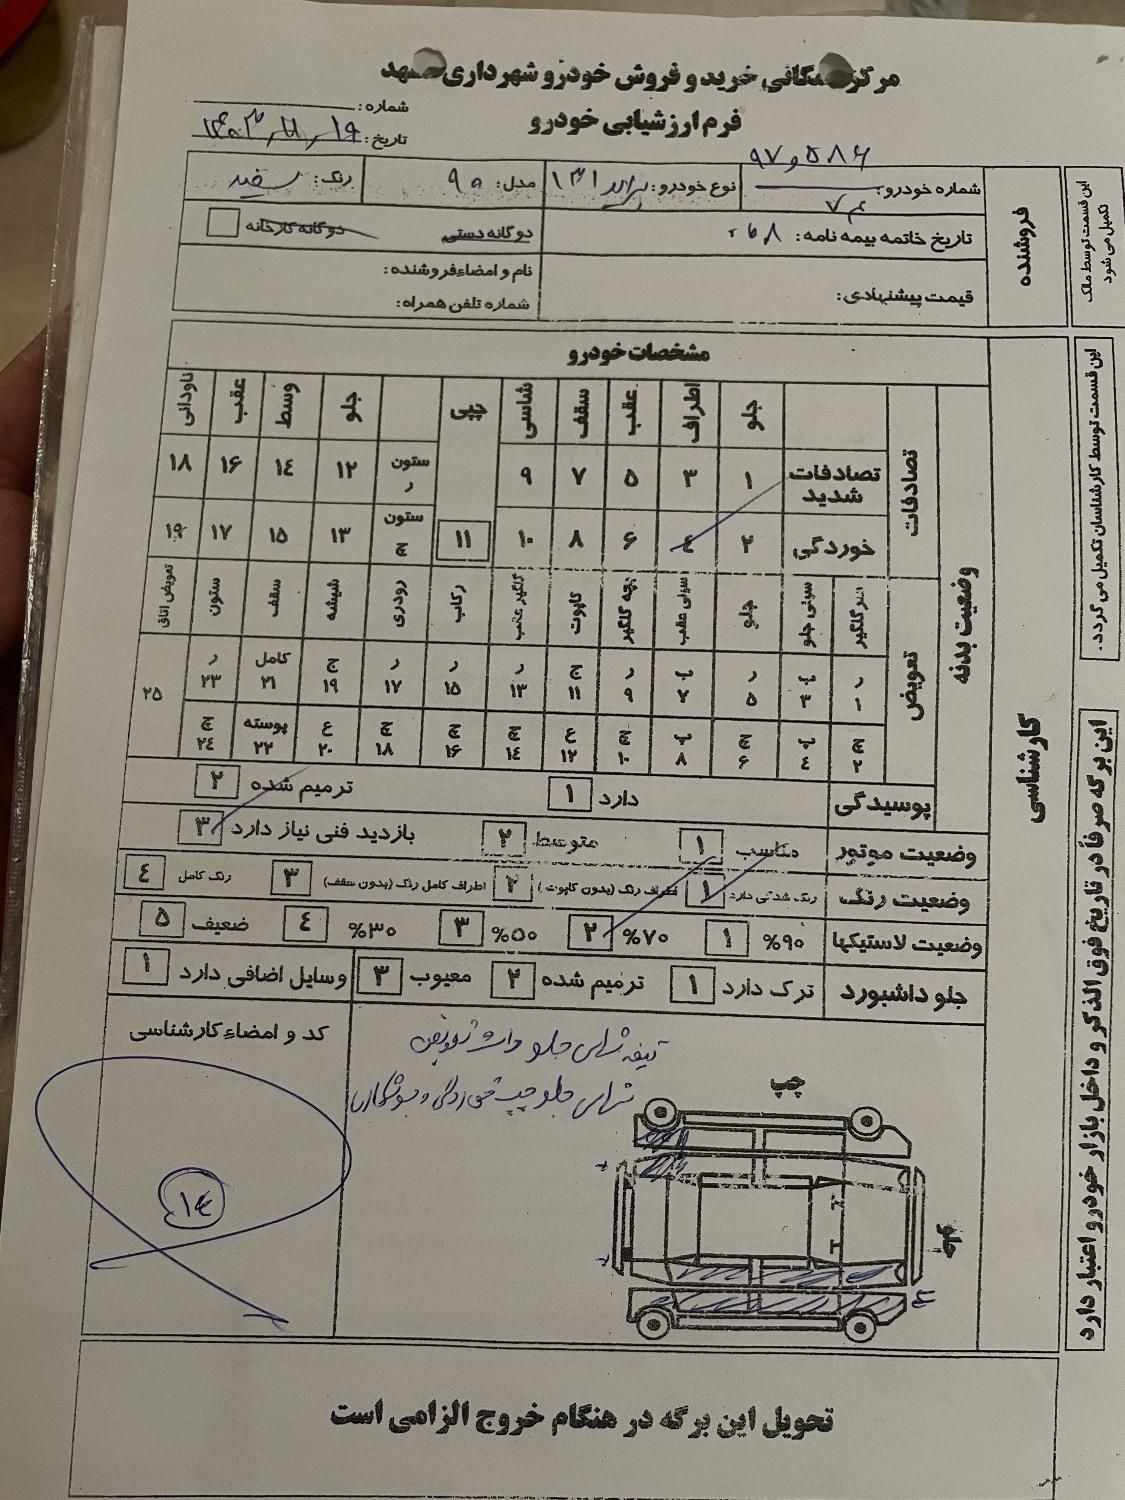 مرکز همگانی خرید و فروش خودرو شهرداری مشهد
فرم ارزشیابی خودرو
شماره:
تاریخ:
این قسمت توسط مالک تکمیل می شود
فروشنده
شماره خودرو: ۹۷و۵۸۶ ۷۴ نوع خودرو: پراید ۱۳۱ مدل: ۹۰ رنگ: سفید
تاریخ خاتمه بیمه نامه: دوگانه دستی دوگانه کارخانه
قیمت پیشنهادی: نام و امضاءفروشنده:
شماره تلفن همراه:
این قسمت توسط کارشناسان تکمیل می گردد.
کارشناسی
مشخصات خودرو
وضعیت بدنه
تصادفات
جلو اطراف عقب سقف شاسی پلی جلو وسط عقب ناودانی
تصادفات شدید ۱ ۳ ۵ ۷ ۹ ستون ر ۱۲ ۱۴ ۱۶ ۱۸
خوردگی ۲ ۴ ۶ ۸ ۱۰ ۱۱ ستون چ ۱۳ ۱۵ ۱۷ ۱۹
تعویض
سرگلگیر سینی جلو جلو سینی عقب بچه گلگیر کاپوت گلگیر عقب رکاب رودری شیشه سقف ستون تعویض اتاق
ر ۱ ۳ ر ۵ ۷ ر ۹ ج ۱۱ ر ۱۳ ر ۱۵ ر ۱۷ ج ۱۹ کامل ۲۱ ر ۲۳ ۲۵
چ ۲ ۴ چ ۶ ۸ چ ۱۰ ع ۱۲ چ ۱۴ چ ۱۶ چ ۱۸ ع ۲۰ پوسته ۲۲ چ ۲۴
پوسیدگی دارد ۱ ترمیم شده ۲
وضعیت موتور مناسب ۱ متوسط ۲ بازدید فنی نیاز دارد ۳
وضعیت رنگ رنگ شدگی دارد ۱ اطراف رنگ (بدون کاپوت) ۲ اطراف کامل رنگ (بدون سقف) ۳ رنگ کامل ۴
وضعیت لاستیکها %۹۰ ۱ %۷۰ ۲ %۵۰ ۳ %۳۰ ۴ ضعیف ۵
جلو داشبورد ترک دارد ۱ ترمیم شده ۲ معیوب ۳ وسایل اضافی دارد ۱
کد و امضاء کارشناسی
۱۴
چپ
جلو
این برگه صرفاً در تاریخ فوق الذکر و داخل بازار خودرو اعتبار دارد
تحویل این برگه در هنگام خروج الزامی است